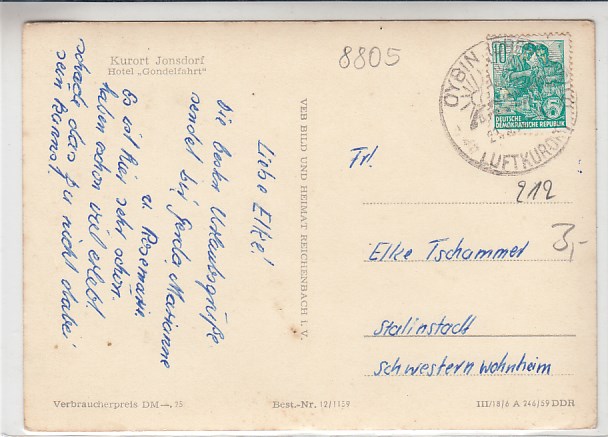 Kurort Jonsdorf
Hotel „Gondelfahrt"
8805
10
DEUTSCHE
DEMOKRATISCHE REPUBLIK
OYBIN
LUFTKURORT
Liebe Elke!
Die besten Urlaubsgrüße
sendet dir Gerda, Marianne
u. Rosemarie.
Es ist hier sehr schön.
haben schon viel erlebt
schade das Du nicht dabei
sein kannst!
VEB BILD UND HEIMAT REICHENBACH i. V.
Frl.
212
3,-
Elke Tschammer
Stalinstadt
Schwesternwohnheim
Verbraucherpreis DM —, 25
Best.-Nr. 12/1159
III/18/6 A 246/59 DDR